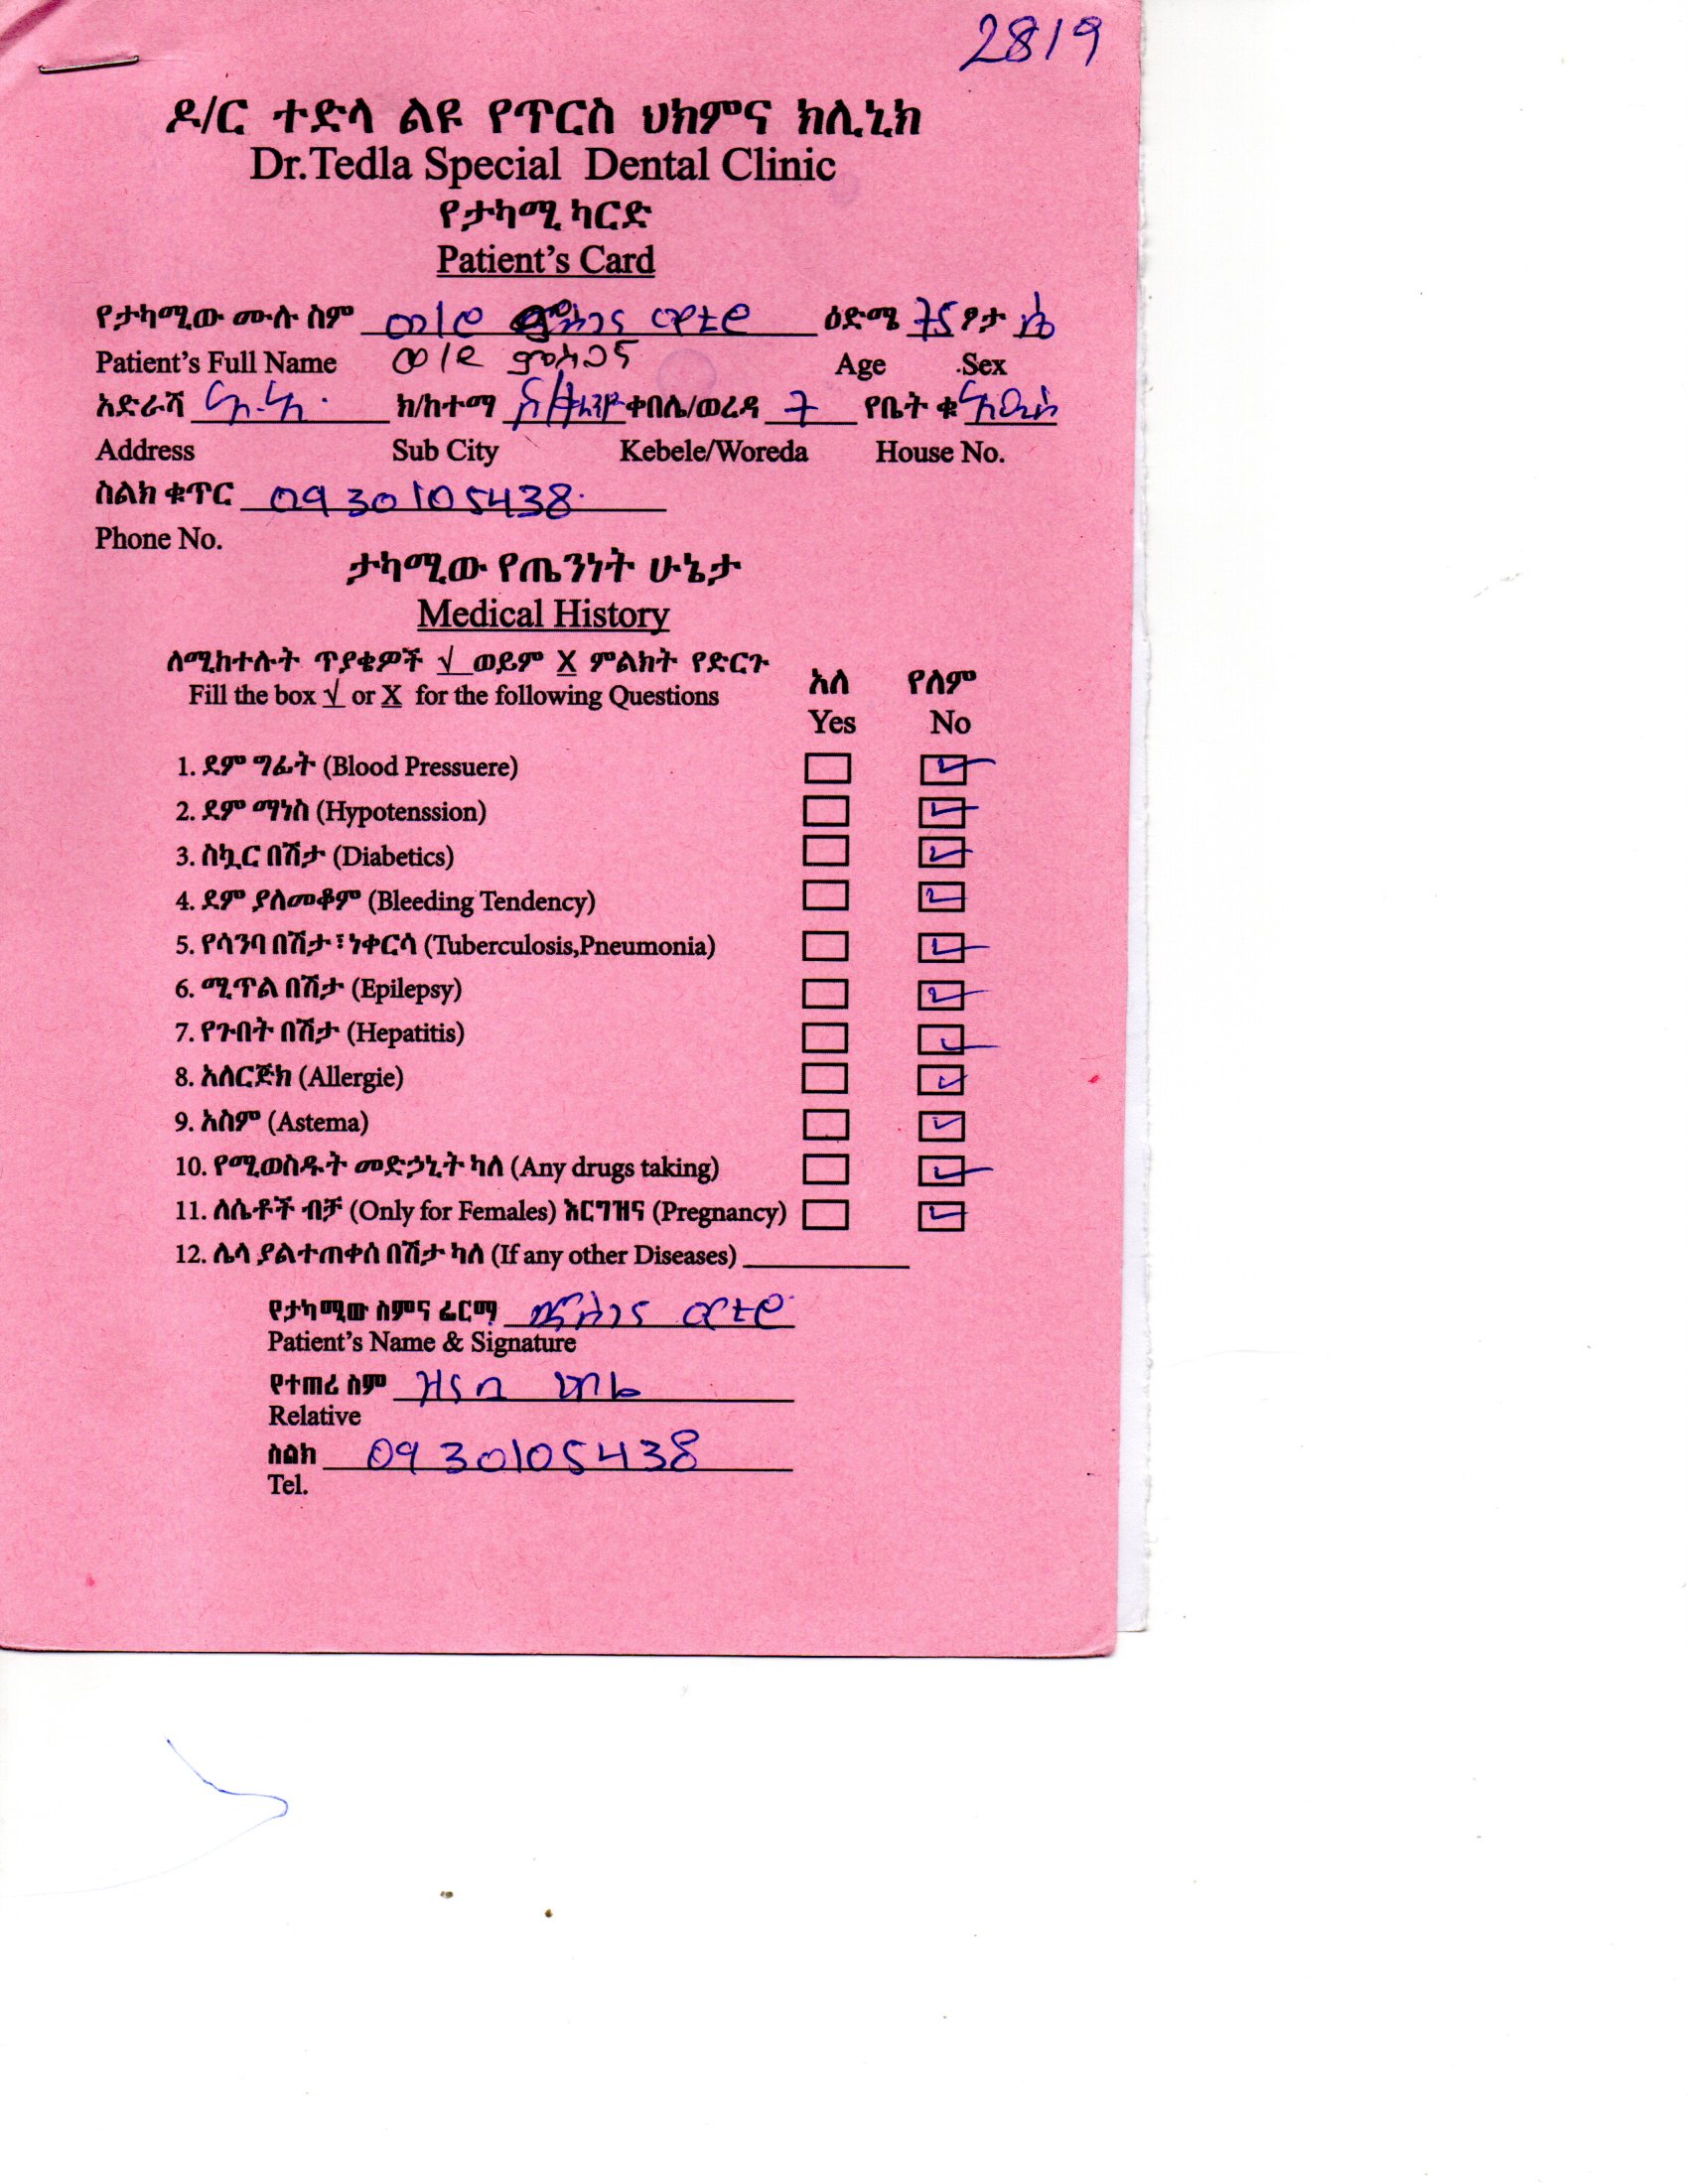 2819
ዶ/ር ተድላ ልዩ የጥርስ ህክምና ክሊኒክ
Dr.Tedla Special Dental Clinic
የታካሚ ካርድ
Patient's Card
የታካሚው ሙሉ ስም ወ/ሮ ምስጋና ዕድሜ ፆታ ሴ
Patient's Full Name ወ/ሮ ምስጋና Age .Sex
አድራሻ አ.አ. ክ/ከተማ ቀበሌ/ወረዳ 7 የቤት ቁ አዲስ
Address Sub City Kebele/Woreda House No.
ስልክ ቁጥር 0930105438
Phone No.
ታካሚው የጤንነት ሁኔታ
Medical History
ለሚከተሉት ጥያቄዎች √ ወይም X ምልክት የድርጉ
Fill the box √ or X for the following Questions
አለ የለም
Yes No
1. ደም ግፊት (Blood Pressuere) ✓
2. ደም ማነስ (Hypotenssion) ✓
3. ስኳር በሽታ (Diabetics) ✓
4. ደም ያለመቆም (Bleeding Tendency) ✓
5. የሳንባ በሽታ፣ነቀርሳ (Tuberculosis,Pneumonia) ✓
6. ሚጥል በሽታ (Epilepsy) ✓
7. የጉበት በሽታ (Hepatitis) ✓
8. አለርጅክ (Allergie) ✓
9. አስም (Astema) ✓
10. የሚወስዱት መድኃኒት ካለ (Any drugs taking) ✓
11. ለሴቶች ብቻ (Only for Females) እርግዝና (Pregnancy) ✓
12. ሌላ ያልተጠቀሰ በሽታ ካለ (If any other Diseases)
የታካሚው ስምና ፊርማ ምስጋና
Patient's Name & Signature
የተጠሪ ስም
Relative
ስልክ 0930105438
Tel.